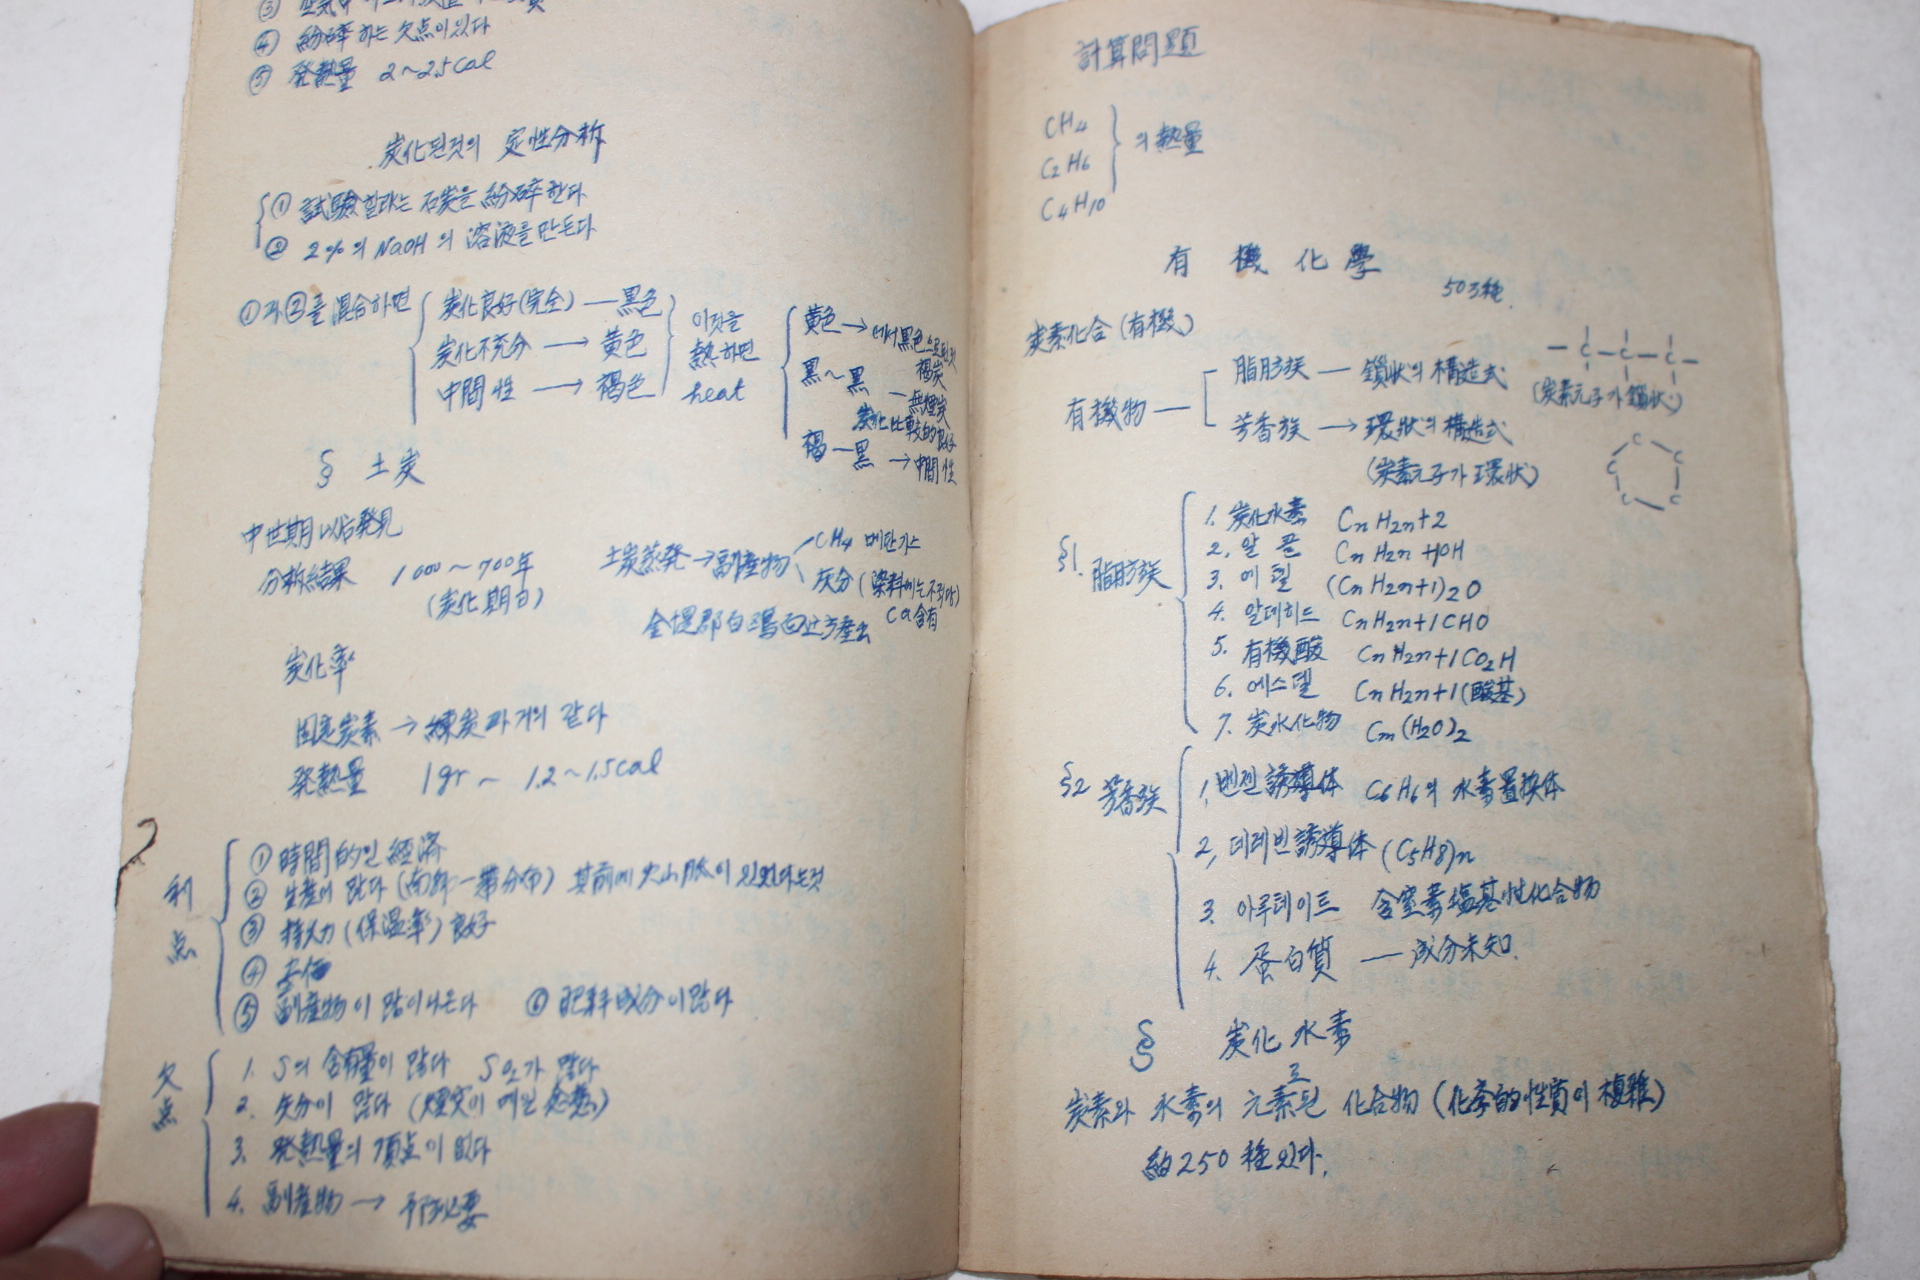 ④ 紛碎하는 欠点이있다
⑤ 発熱量 2~2.5cal
炭化된것의 定性分析
① 試驗할라는 石炭을 紛碎한다
② 2%의 NaOH의 溶液을만든다
①과②를 混合하면
炭化良好(完全) — 黒色
炭化不充分 → 黄色
中間性 → 褐色
이것을
熱하면
heat
黄色 → 에서黒色으로된것
褐炭
黒~黒 — 無煙炭
炭化比較的良好
褐—黒 → 中間性
§ 土炭
中世期以后発見
分析結果 1000~700年
(炭化期日)
土炭蒸発 → 副産物
CH4 메탄가스
灰分 (染料에는不적당)
Ca含有
金堤郡白鷗面近方産出
炭化率
固定炭素 → 練炭과거의 같다
発熱量 1gr ~ 1.2~1.5cal
利点
① 時間的인 経済
② 生産이 많다 (南鮮一帯分布) 其前에 火山脈이 있었다는것
③ 持火力(保温率) 良好
④
⑤ 副産物이 많이나온다 ⑥ 肥料成分이많다
欠点
1. S의 含有量이 많다 SO2가 많다
2. 灰分이 많다 (煙突이 메일念慮)
3. 発熱量의 頂点이 없다
4. 副産物 → 不必要
計算問題
CH4
C2H6
C4H10
의 熱量
有機化學
503種.
炭素化合(有機)
有機物
脂肪族 — 鎖状의構造式
(炭素元子가鎖状)
芳香族 → 環状의構造式
(炭素元子가環状)
— C — C — C —
C C C C C
§1. 脂肪族
1. 炭化水素 CnH2n+2
2. 알콜 CnH2n+1OH
3. 에텔 (CnH2n+1)2O
4. 알데히드 CnH2n+1CHO
5. 有機酸 CnH2n+1CO2H
6. 에스텔 CnH2n+1(酸基)
7. 炭水化物 Cm(H2O)2
§2 芳香族
1. 벤젠誘導体 C6H6의 水素置換体
2, 데레빈誘導体 (C5H8)n
3. 아루데이드 含窒素塩基性化合物
4. 蛋白質 — 成分未知.
§ 炭化水素
炭素와 水素의 元素로된 化合物 (化学的性質이 複雜)
約250種있다.